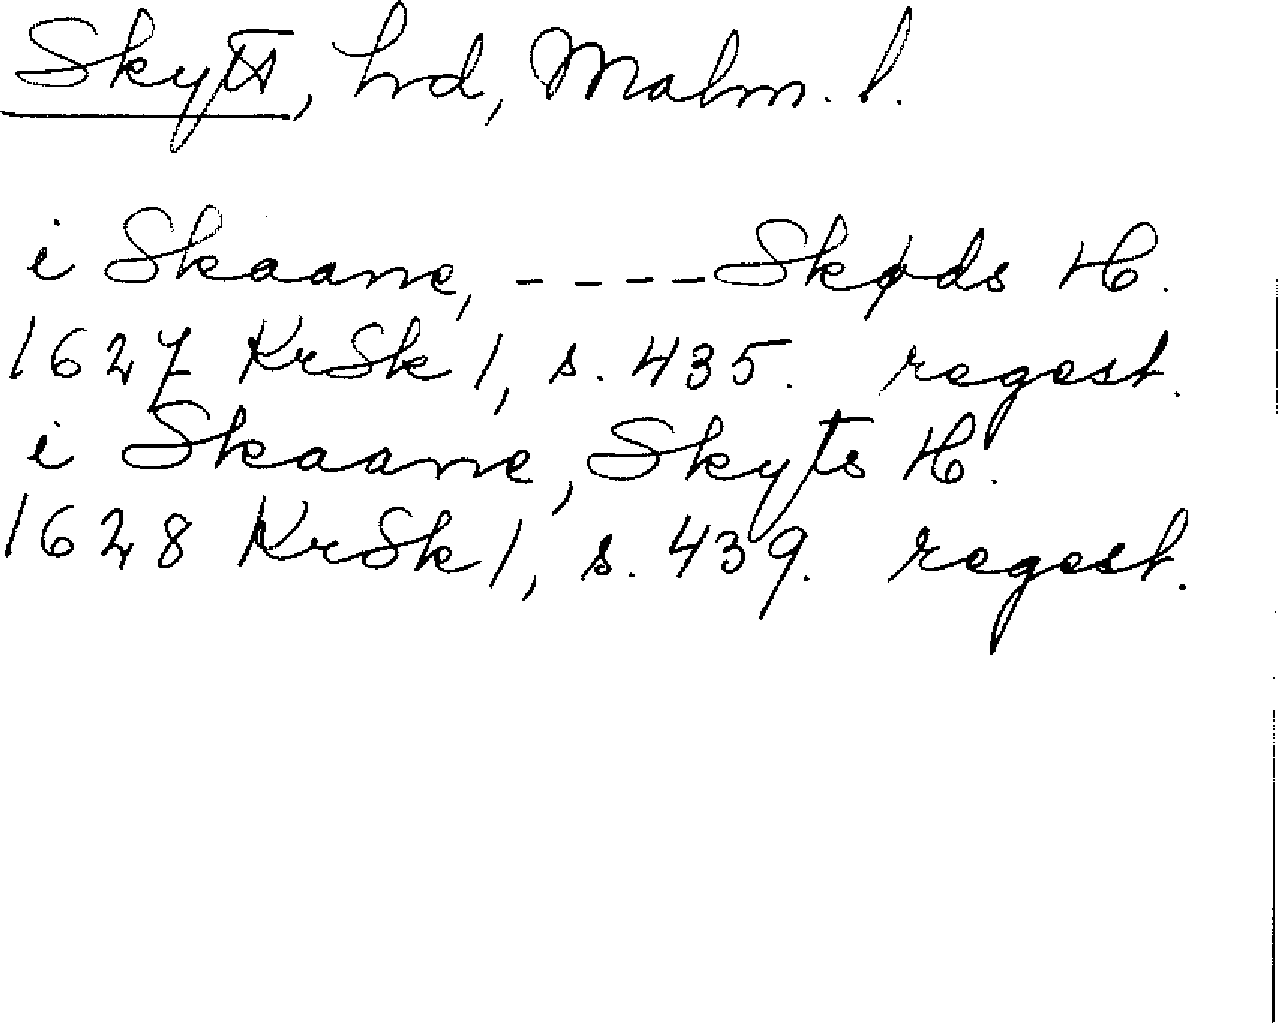 Skytts, hrd, Malm. l.
i Skaane, ---- Skøds H.
1627 KrSk 1, s. 435. regest.
i Skaane, Skyts H.
1628 KrSk 1, s. 439. regest.